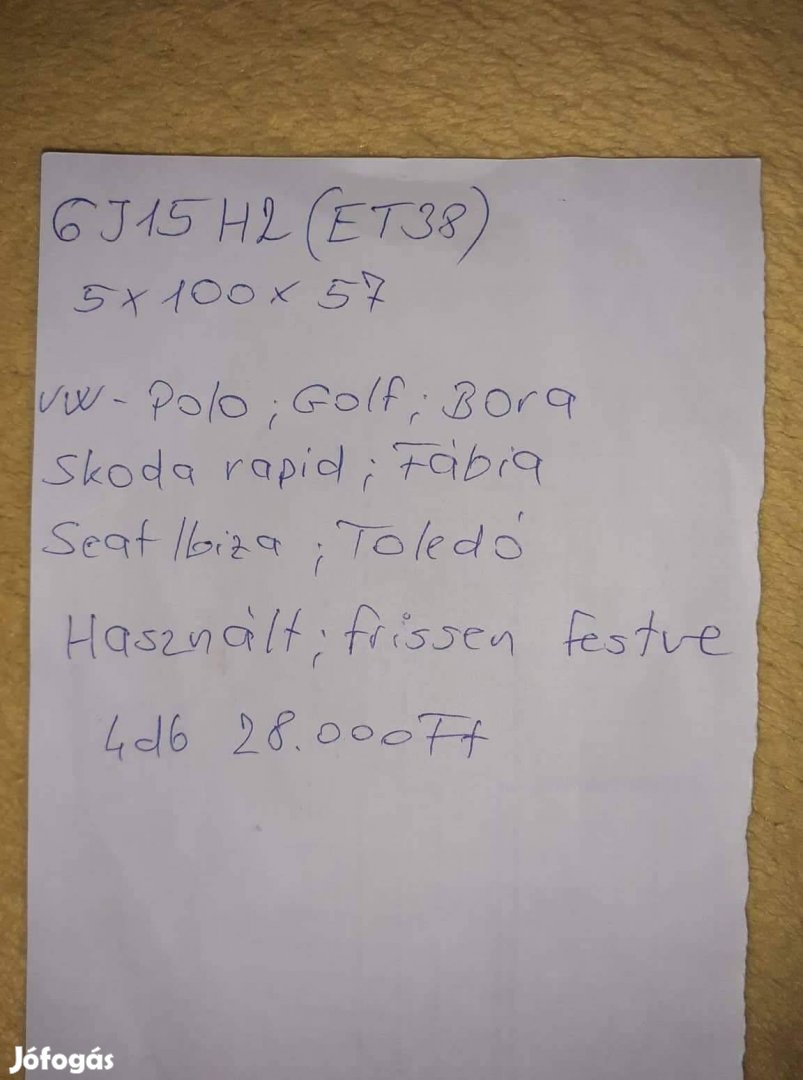 6J15H2 (ET38)
5x100x57
VW - Polo ; Golf ; Bora
Skoda rapid ; Fábia
Seat Ibiza ; Toledó
Használt ; frissen festve
4db 28.000Ft
Jófogás